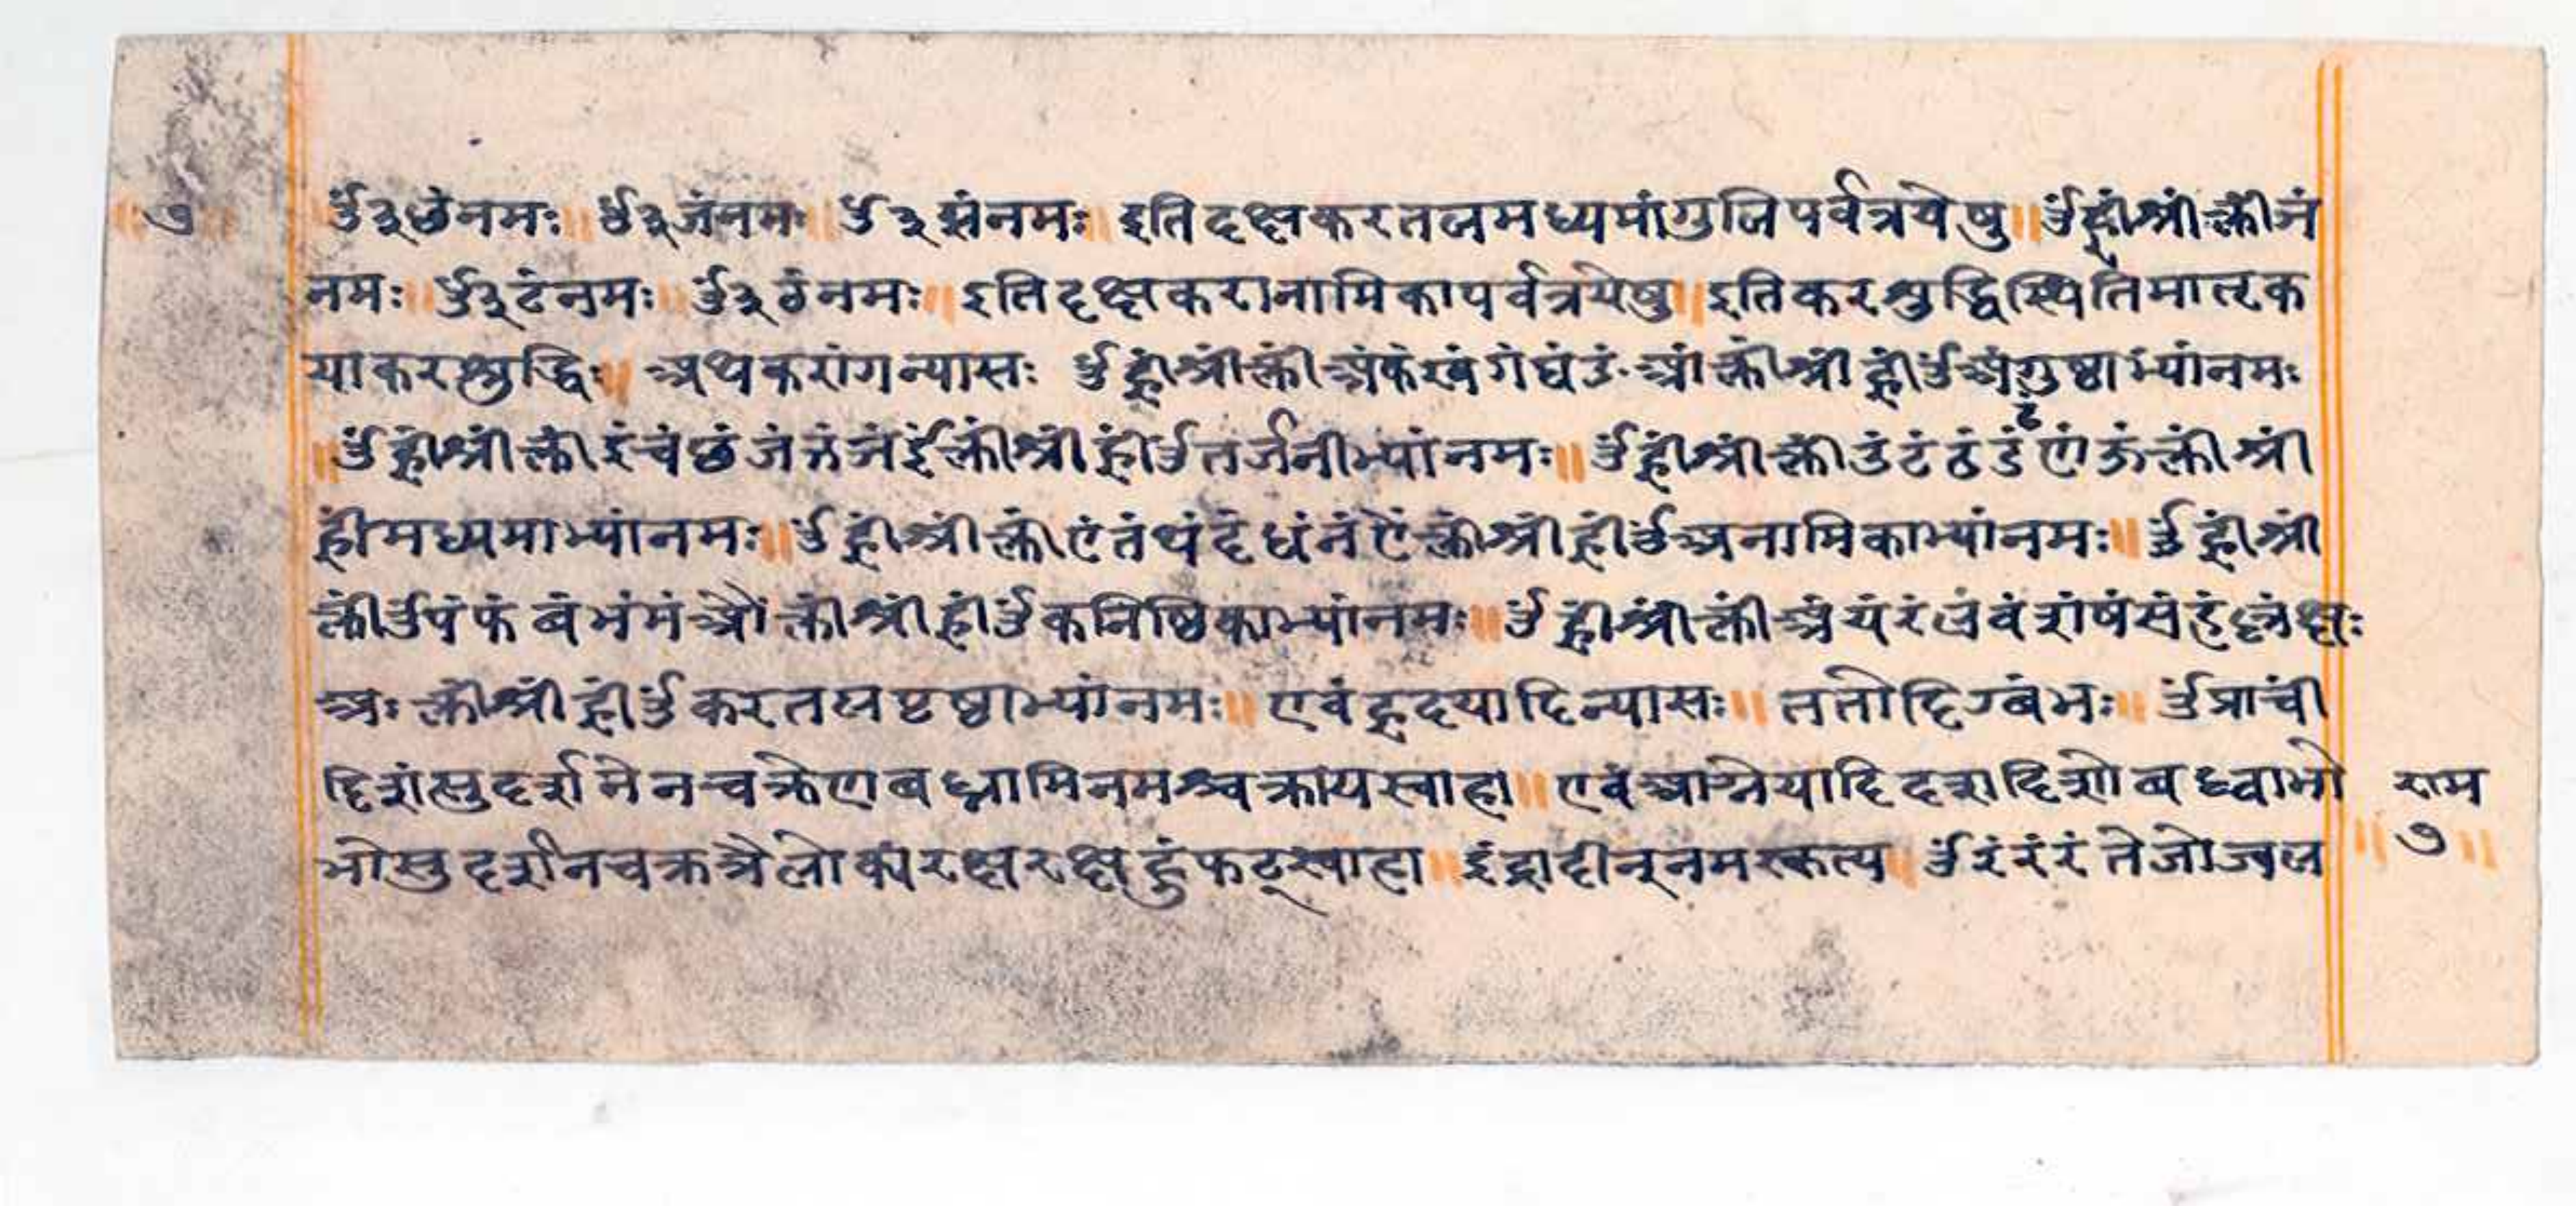 ७
ॐ३छंनमः॥ॐ३जंनमः॥ॐ३झंनमः॥इतिदक्षकरतलमध्यमांगुलिपर्वत्रयेषु॥ॐह्रींश्रींक्लींञं
नमः॥ॐ३टंनमः॥ॐ३ठंनमः॥इतिदक्षकरानामिकापर्वत्रयेषु॥इतिकरशुद्धिस्थितिमातृक
याकरशुद्धिः॥अथकरांगन्यासः ॐह्रींश्रींक्लींअंकंखंगंघंङंआंक्लींश्रींह्रींॐअंगुष्ठाभ्यांनमः
॥ॐह्रींश्रींक्लींइंचंछंजंझंञंईंक्लींश्रींह्रींॐतर्जनीभ्यांनमः॥ॐह्रींश्रींक्लींउंटंठंडंढंणंऊंक्लींश्रीं
ह्रींमध्यमाभ्यांनमः॥ॐह्रींश्रींक्लींएंतंथंदंधंनंऐंक्लींश्रींह्रींॐअनामिकाभ्यांनमः॥ॐह्रींश्रीं
क्लींॐपंफंबंभंमंऔंक्लींश्रींह्रींॐकनिष्ठिकाभ्यांनमः॥ॐह्रींश्रींक्लींअंयंरंलंवंशंषंसंहंळंक्षः
अःक्लींश्रींह्रींॐकरतलपृष्ठाभ्यांनमः॥एवंहृदयादिन्यासः॥ततोदिग्बंभः॥ॐप्राचीं
दिशंसुदर्शनेनचक्रेणबध्नामिनमश्चक्रायस्वाहा॥एवंआग्नेयादिदशदिशोबध्वाभो
राम
भोसुदर्शनचक्रत्रैलोक्यंरक्षरक्षहुंफट्स्वाहा॥इंद्रादीन्नमस्कृत्य॥ॐरंरंरंतेजोज्वल
॥७॥